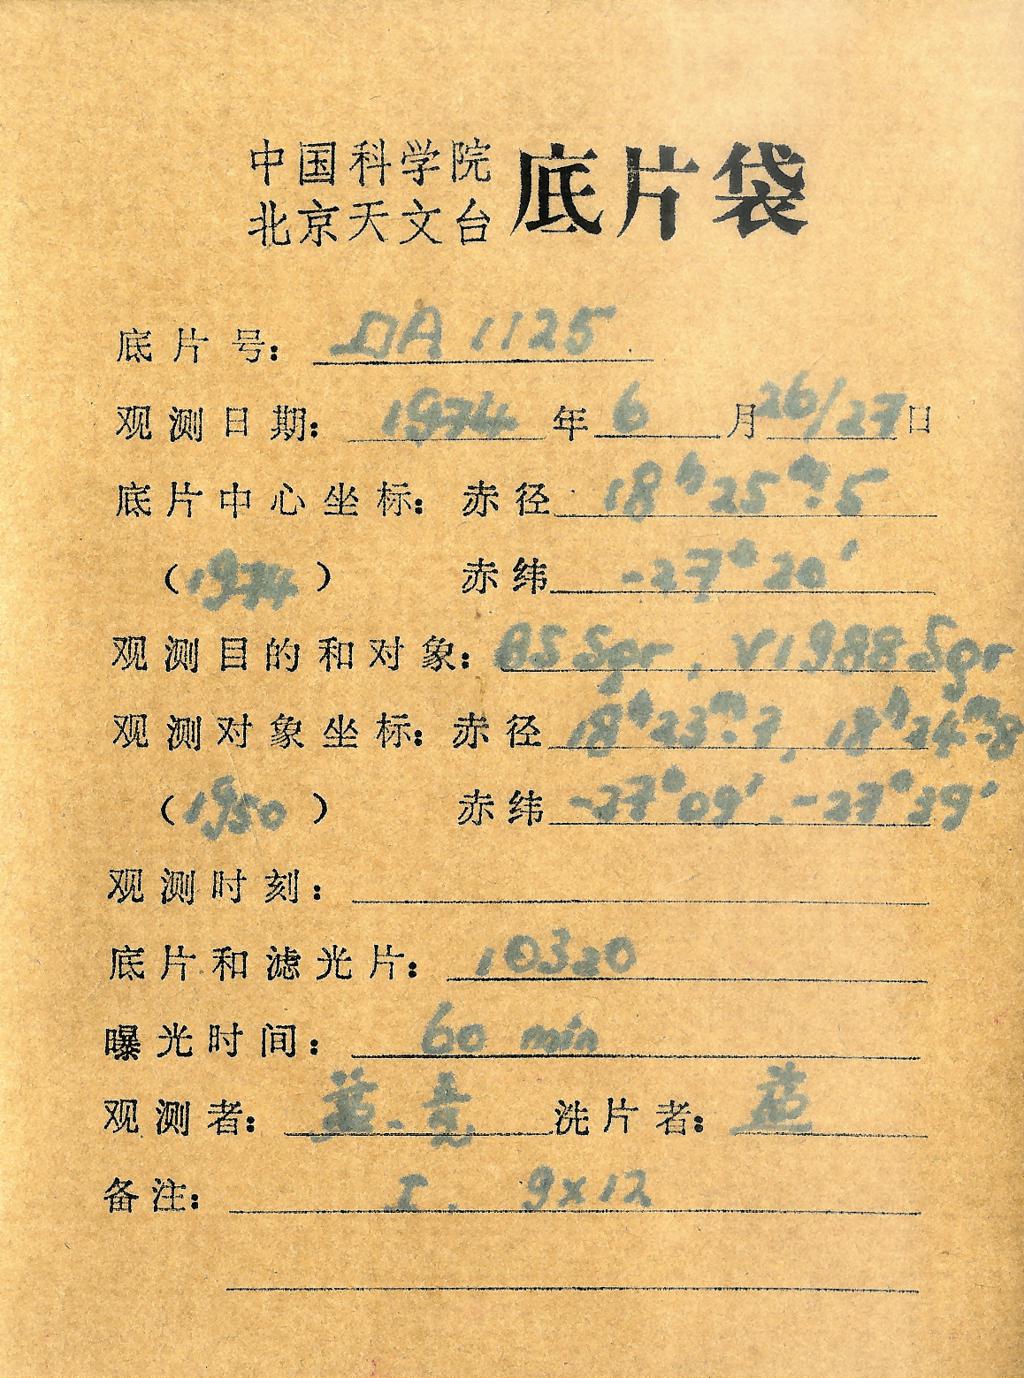 中国科学院
北京天文台 底片袋
底片号: DA 1125
观测日期: 1974 年 6 月 26/27 日
底片中心坐标: 赤径 18ʰ25ᵐ.5
(1974) 赤纬 -27°20′
观测目的和对象: BS Sgr, V1988 Sgr
观测对象坐标: 赤径 18ʰ23ᵐ.7, 18ʰ24ᵐ.8
(1950) 赤纬 -27°09′, -27°39′
观测时刻:
底片和滤光片: 10320
曝光时间: 60 min
观测者: 洗片者:
备注: I. 9×12